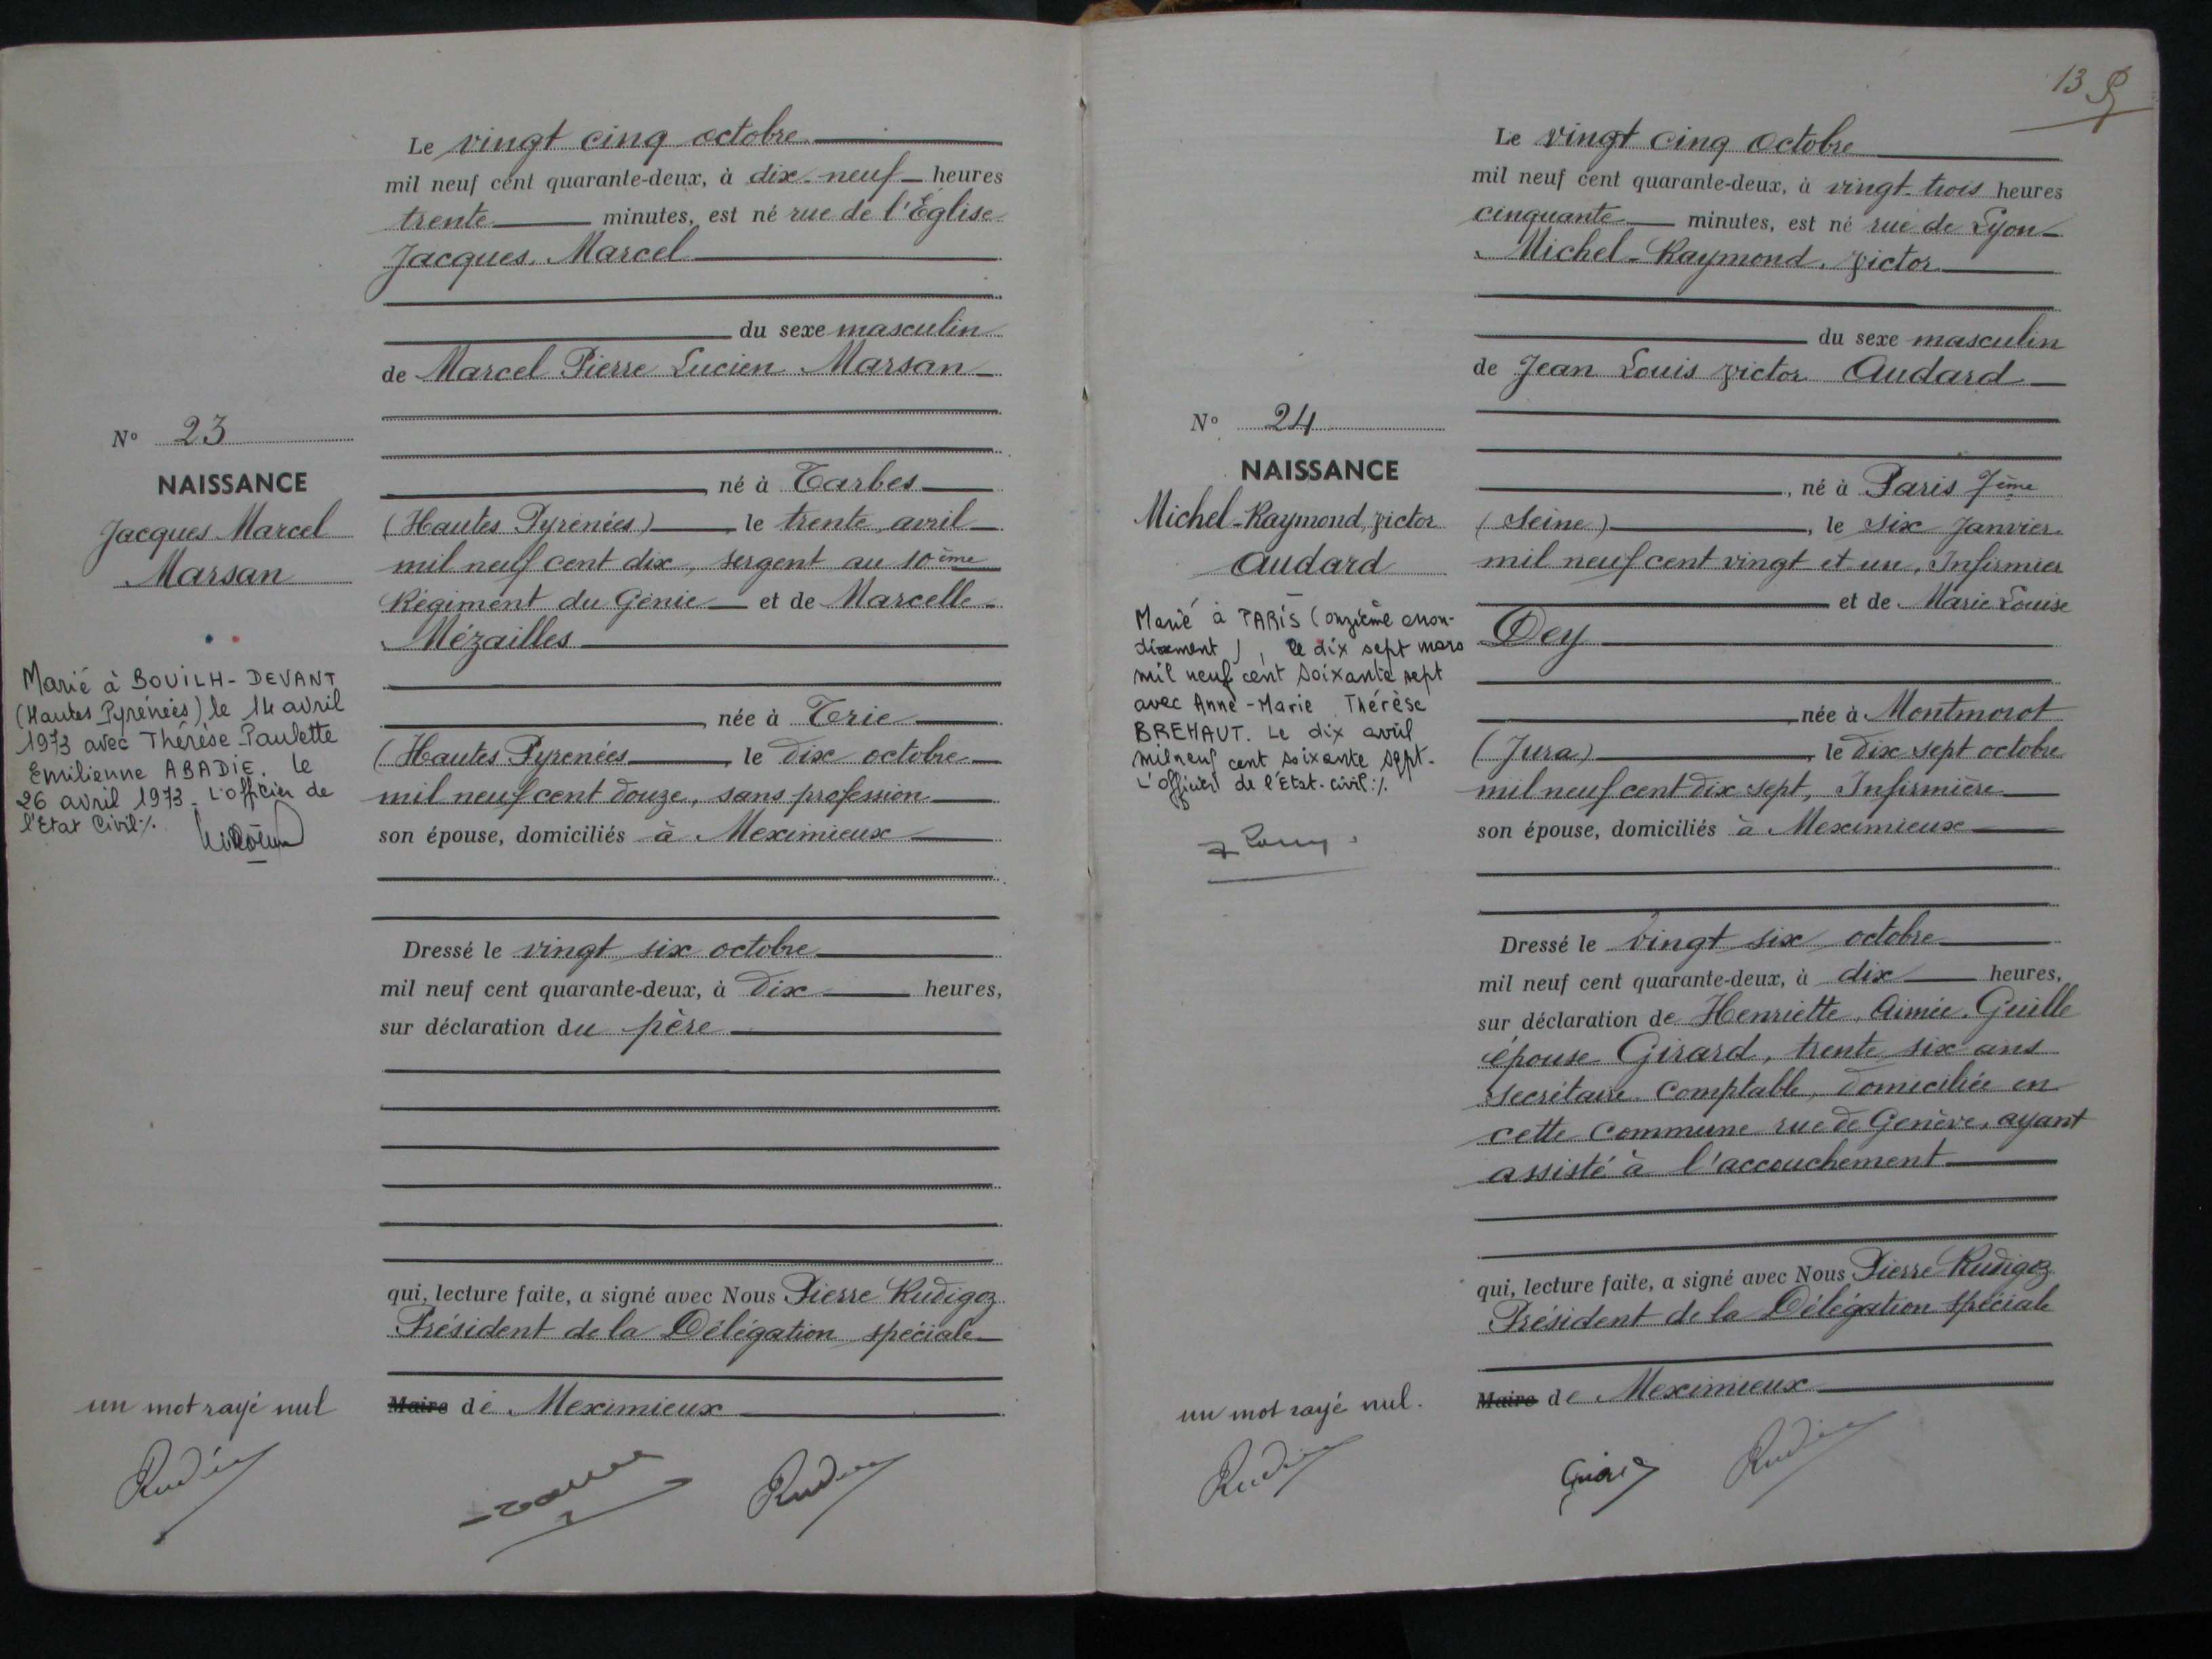 Le vingt cinq octobre
mil neuf cent quarante-deux, à dix-neuf heures
trente minutes, est né rue de l'Église
Jacques, Marcel
du sexe masculin
de Marcel Pierre Lucien Marsan
N° 23
NAISSANCE
Jacques Marcel
Marsan
né à Tarbes
(Hautes Pyrénées) , le trente avril
mil neuf cent dix, sergent au 10ème
Régiment du Génie et de Marcelle
Mézailles
Marié à BOUILH-DEVANT
(Hautes Pyrénées) le 14 avril
1973 avec Thérèse Paulette
Emilienne ABADIE. Le
26 avril 1973. L'officier de
l'Etat Civil ./.
née à Trie
(Hautes Pyrenées , le dix octobre
mil neuf cent douze, sans profession
son épouse, domiciliés à Meximieux
Dressé le vingt six octobre
mil neuf cent quarante-deux, à dix heures,
sur déclaration du père
qui, lecture faite, a signé avec Nous Pierre Rudigoz
Président de la Délégation spéciale
un mot rayé nul
Maire de Meximieux
13
Le vingt cinq octobre
mil neuf cent quarante-deux, à vingt-trois heures
cinquante minutes, est né rue de Lyon
Michel-Raymond, Victor
du sexe masculin
de Jean Louis Victor Audard
N° 24
NAISSANCE
Michel-Raymond, Victor
Audard
, né à Paris 7ème
(Seine) , le six janvier
mil neuf cent vingt et un, Infirmier
et de Marie Louise
Dey
Marié à PARIS (onzième arron-
dissement), le dix sept mars
mil neuf cent soixante sept
avec Anne-Marie Thérèse
BREHAUT. Le dix avril
mil neuf cent soixante sept.
L'officier de l'Etat-civil ./.
née à Montmorot
(Jura) , le dix sept octobre
mil neuf cent dix sept, Infirmière
son épouse, domiciliés à Meximieux
Dressé le vingt six octobre
mil neuf cent quarante-deux, à dix heures,
sur déclaration de Henriette, Aimée, Guille
épouse Girard, trente six ans
secrétaire comptable, domiciliée en
cette commune rue de Genève, ayant
assisté à l'accouchement
qui, lecture faite, a signé avec Nous Pierre Rudigoz
Président de la Délégation spéciale
un mot rayé nul.
Maire de Meximieux